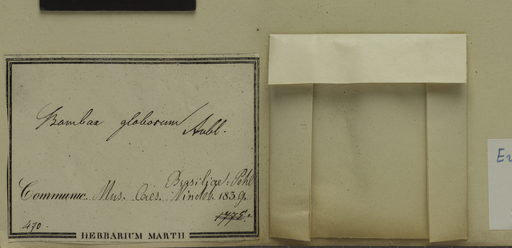 Bombax globosum Aubl.
Brasilia: Pohl
Communic. Mus. Caes. Vindob. 1839.
470.
HERBARIUM MARTII